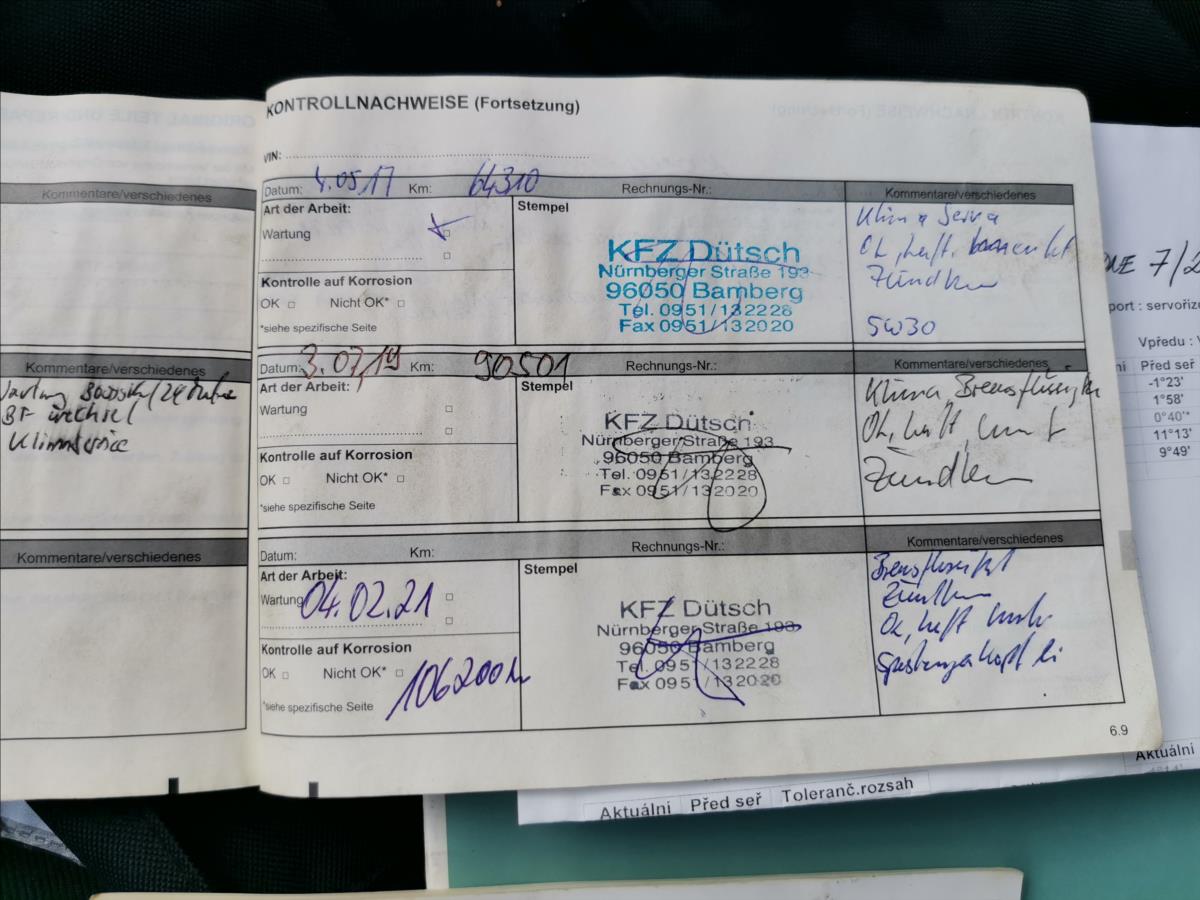 KONTROLLNACHWEISE (Fortsetzung)
VIN:
Kommentare/verschiedenes
Datum: 4.05.17 Km: 64310 Rechnungs-Nr.: Kommentare/verschiedenes
Art der Arbeit:
Wartung
Kontrolle auf Korrosion
OK Nicht OK*
*siehe spezifische Seite
Stempel
KFZ Dütsch
Nürnberger Straße 193
96050 Bamberg
Tel. 0951/132228
Fax 0951/132020
Klima
5W30
Kommentare/verschiedenes
Wartung
BF wechsel
Klimaservice
Datum: 3.07.19 Km: 90501 Rechnungs-Nr.: Kommentare/verschiedenes
Art der Arbeit:
Wartung
Kontrolle auf Korrosion
OK Nicht OK*
*siehe spezifische Seite
Stempel
KFZ Dütsch
Nürnberger Straße 193
96050 Bamberg
Tel. 0951/132228
Fax 0951/132020
Klima
Kommentare/verschiedenes
Datum: Km: Rechnungs-Nr.: Kommentare/verschiedenes
Art der Arbeit:
Wartung 04.02.21
Kontrolle auf Korrosion
OK Nicht OK*
106200
*siehe spezifische Seite
Stempel
KFZ Dütsch
Nürnberger Straße 193
96050 Bamberg
Tel. 0951/132228
Fax 0951/132020
6.9
7/2
port : servořize
Vpředu :
Před seř
-1°23'
1°58'
0°40'*
11°13'
9°49'
Aktuální
Aktuální Před seř Toleranč.rozsah